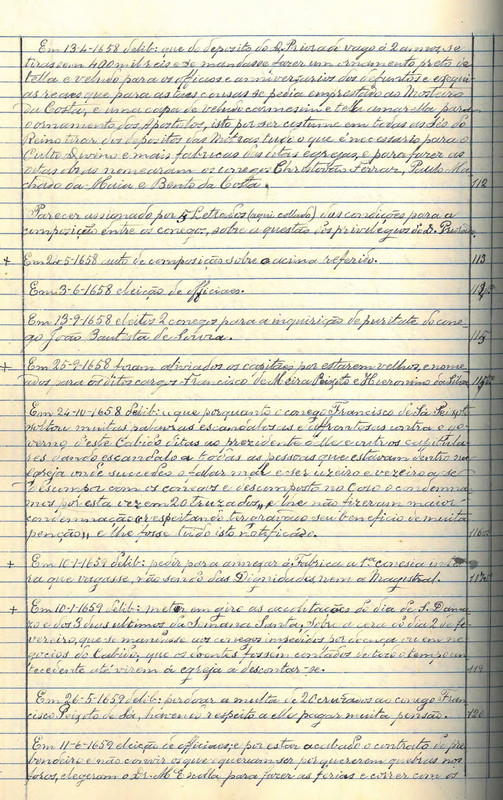 Em 13-4-1658 delib: que do deposito do D. Priorado vago á 2 annos, se
tirassem 400 mil reis e se mandasse fazer um ornamento preto de
tella e veludo para os officios e anniversarios dos defuntos e exequi-
as reaes que para as das cousas se pedia emprestado ao Mosteiro
da Costa, e uma capa de veludo carmesim e tella amarella para
o ornamento dos Apostolos, isto por ser costume em todas as Sés do
Reino tirar dos depositos das Mitras tudo o que é necessario para o
Culto Divino e mais fabricas das ditas egrejas, e para fazer as
ditas obras nomearam os conegos Christovão Ferraz, Paulo Ma-
chado da Maia e Bento da Costa. 112
Parecer assignado por 5 Letrados (aqui collado) das condições para a
composição entre os conegos, sobre a questão dos privilegios do D. Prior
+ Em 20-5-1658 auto de composição sobre o acima referido. 113
Em 3-6-1658 eleição de officiaes. 114
Em 13-9-1658 eleitos 2 conegos para a inquirição de puritate do cone-
go João Baptista de 115
+ Em 25-9-1658 foram alliviados os capitães por estarem velhos, e nome-
ados para os ditos cargos Francisco de Meira Peixoto e Hieronimo da Silva
Em 24-10-1658 delib: que porquanto o conego Francisco de Sá Peixoto
soltou muitas palavras escandalosas e afrontosas contra o go-
verno d'este Cabido ditas ao prezidente d'elle e outros capitula-
res dando escandalo a todas as pessoas que estavam dentro na
egreja onde succedeo o fallar mal, e ser uzeiro e vezeiro a se
descompor com os conegos e descomposto no Coro o condemna-
mos por esta vez em 20 cruzados, e lhe não fizeram maior
condemnação respeitando ter o seu beneficio de muita
penção, e lhe fosse tudo isto notificado. 116
+ Em 10-1-1659 delib: pedir para annexar á Fabrica a 1ª conesia intei-
ra que vagasse, não sendo das Dignidades nem a Magistral. 117
+ Em 10-1-1659 delib: meter em giro as acceitações do dia de S. Dama-
zo e dos 3 dias ultimos da Semana Santa, sobre a cera do dia 2 de fe-
vereiro, que se mandasse aos conegos impedidos por doença ou em ne-
gocios do Cabido, que os doentes fossem contados de todo o tempo an-
tecedente até virem á egreja a descontar-se. 119
Em 26-5-1659 delib: perdoar a multa de 20 cruzados ao conego Fran-
cisco Peixoto de Sá, havendo respeito a elle pagar muita pensão. 120
Em 11-6-1659 eleição de officiaes; e por estar acabado o contrato do pre-
bendeiro e não convir os que queriam ser por quererem quebras nos
fóros, elegeram o Dr. M. para fazer as ferias e correr com os